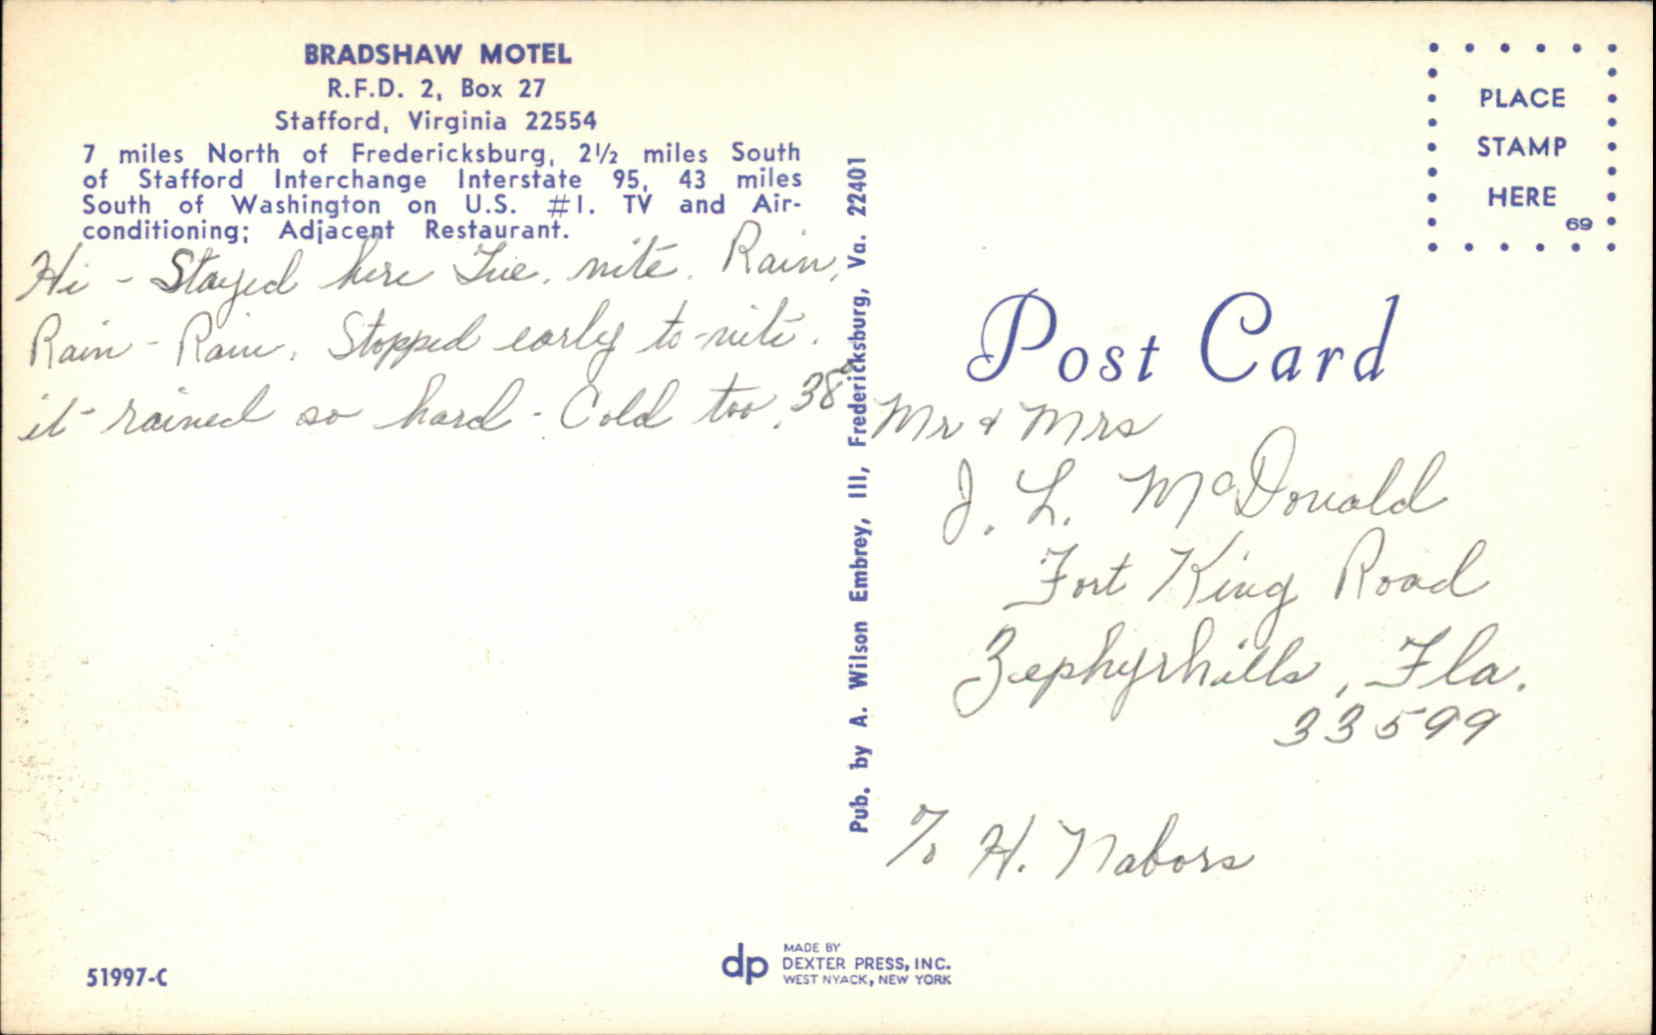 BRADSHAW MOTEL
R.F.D. 2, Box 27
Stafford, Virginia 22554
7 miles North of Fredericksburg, 2½ miles South
of Stafford Interchange Interstate 95, 43 miles
South of Washington on U.S. #1. TV and Air-
conditioning; Adjacent Restaurant.
Hi - Stayed here Tue. nite. Rain,
Rain - Rain. Stopped early to-nite.
it rained so hard - Cold too, 38°
Pub. by A. Wilson Embrey, III, Fredericksburg, Va. 22401
PLACE
STAMP
HERE
69
Post Card
Mr & Mrs
J. L. McDonald
Fort King Road
Zephyrhills, Fla.
33599
% H. Nabors
51997-C
dp
MADE BY
DEXTER PRESS, INC.
WEST NYACK, NEW YORK